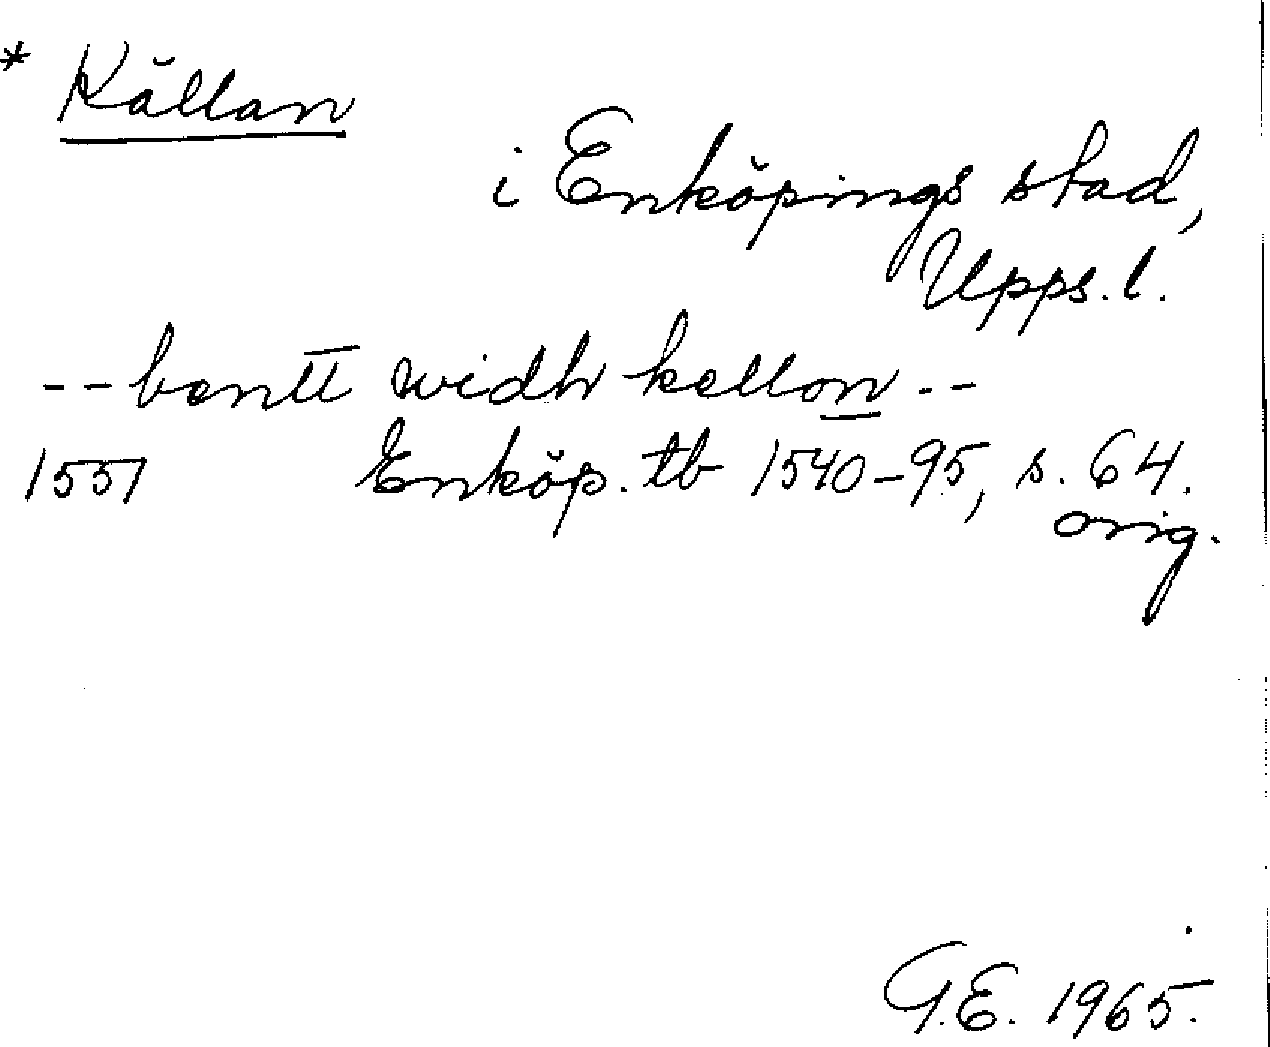 * Källan
i Enköpings stad,
Upps. l.
-- bentt widh kellon --
1551 Enköp. tb 1540-95, s. 64.
orig.
G.E. 1965.